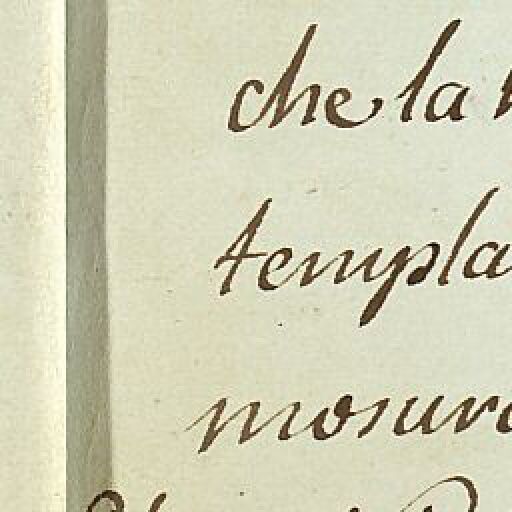 che la
templa
mosura